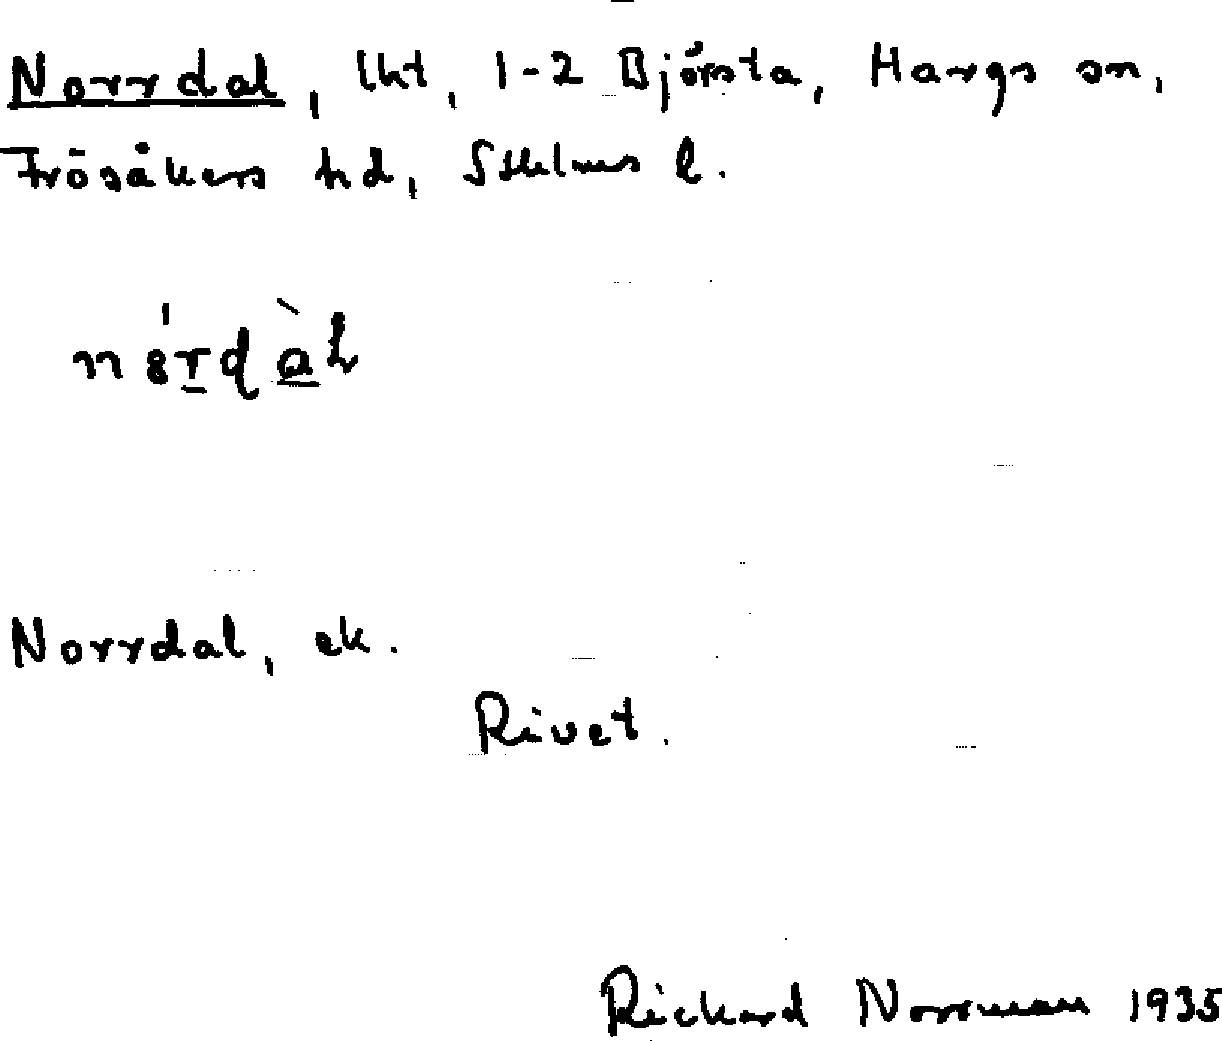 Norrdal, lht, 1-2 Björsta, Hargs sn,
Frösåkers hd, Sthlms l.
Norrdal, ek.
Rivet.
Rickard Norrman 1935